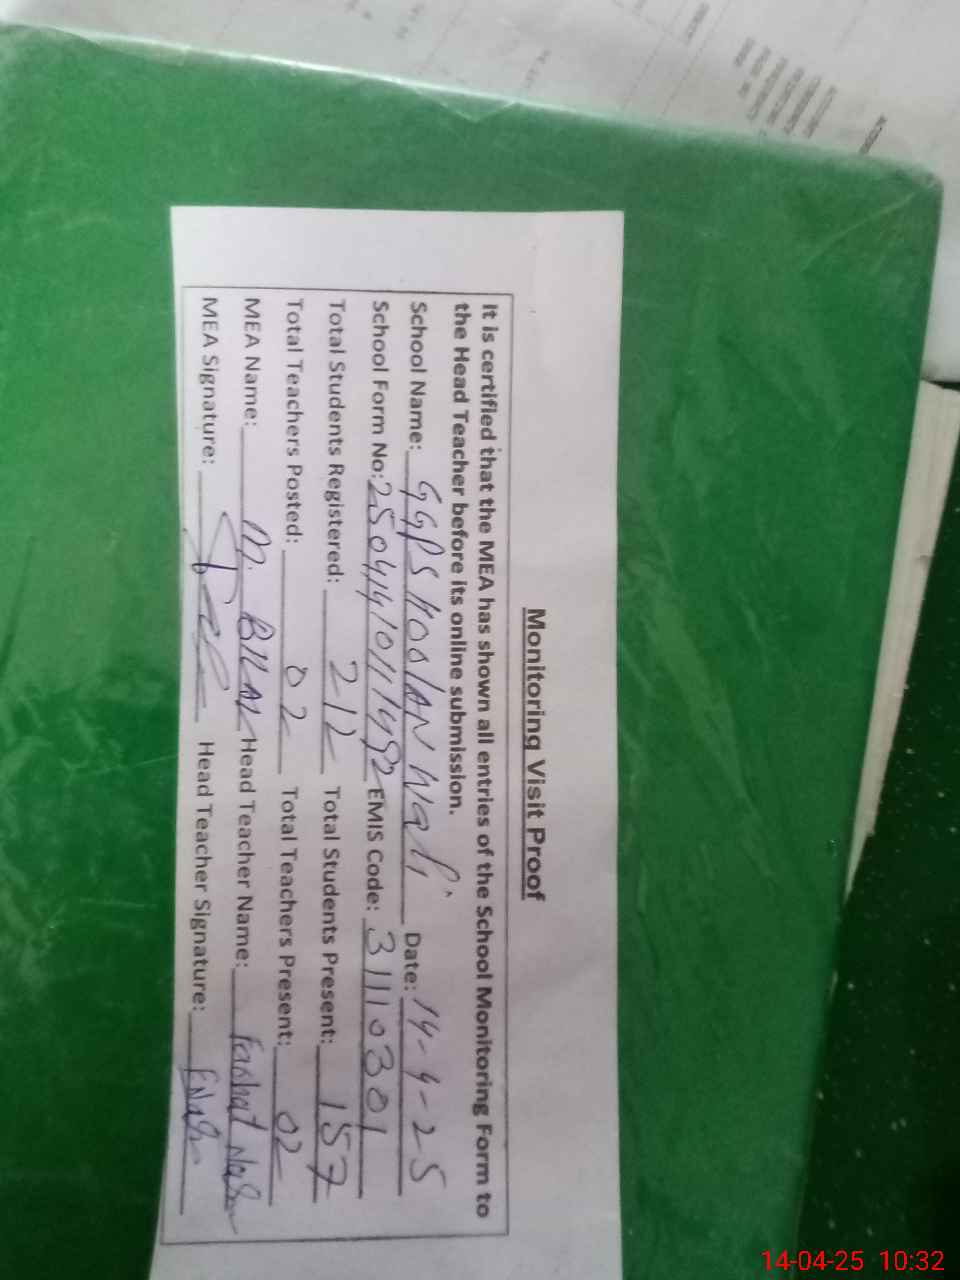 Monitoring Visit Proof
It is certified that the MEA has shown all entries of the School Monitoring Form to
the Head Teacher before its online submission.
School Name: GGPS Wali Date: 14-4-25
School Form No: EMIS Code: 31110301
Total Students Registered: 212 Total Students Present: 157
Total Teachers Posted: 02 Total Teachers Present: 02
MEA Name: M. Bilal Head Teacher Name: Farhat
MEA Signature: Head Teacher Signature:
14-04-25 10:32